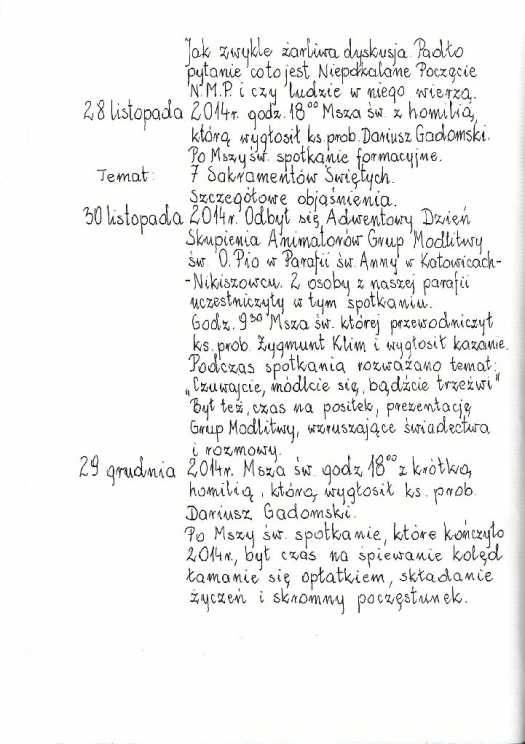 Jak zwykle żarliwa dyskusja. Padło
pytanie co to jest Niepokalane Poczęcie
N.M.P. i czy ludzie w niego wierzą.
28 listopada 2014r. godz. 18⁰⁰ Msza św. z homilią,
którą wygłosił ks. prob. Dariusz Gadomski.
Po Mszy św. spotkanie formacyjne.
Temat: 7 Sakramentów Świętych.
Szczegółowe objaśnienia.
30 listopada 2014r. Odbył się Adwentowy Dzień
Skupienia Animatorów Grup Modlitwy
św. O. Pio w Parafii św. Anny w Katowicach-
-Nikiszowcu. 2 osoby z naszej parafii
uczestniczyły w tym spotkaniu.
Godz. 9³⁰ Msza św. której przewodniczył
ks. prob. Zygmunt Klim i wygłosił kazanie.
Podczas spotkania rozważano temat:
„Czuwajcie, módlcie się, bądźcie trzeźwi"
Był też, czas na posiłek, prezentację
Grup Modlitwy, wzruszające świadectwa
i rozmowy.
29 grudnia 2014r. Msza św. godz 18⁰⁰ z krótką
homilią, którą wygłosił ks. prob.
Dariusz Gadomski.
Po Mszy św. spotkanie, które kończyło
2014r., był czas na śpiewanie kolęd
łamanie się opłatkiem, składanie
życzeń i skromny poczęstunek.